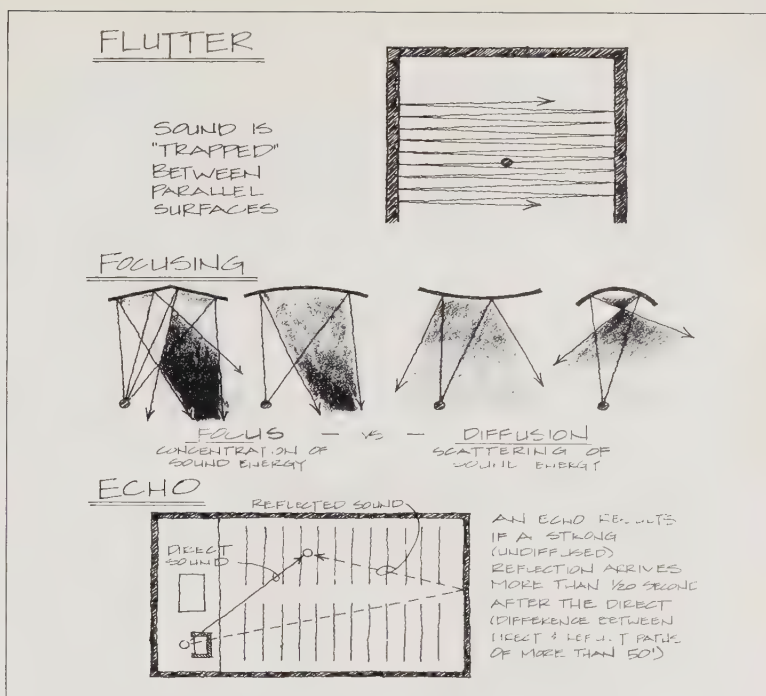 FLUTTER
SOUND IS
"TRAPPED"
BETWEEN
PARALLEL
SURFACES
FOCUSING
FOCUS — VS — DIFFUSION
CONCENTRATION OF
SOUND ENERGY
SCATTERING OF
SOUND ENERGY
ECHO
REFLECTED SOUND
DIRECT
SOUND
AN ECHO RESULTS
IF A STRONG
(UNDIFFUSED)
REFLECTION ARRIVES
MORE THAN 1/20 SECOND
AFTER THE DIRECT
(DIFFERENCE BETWEEN
DIRECT & PATHS
OF MORE THAN 50')